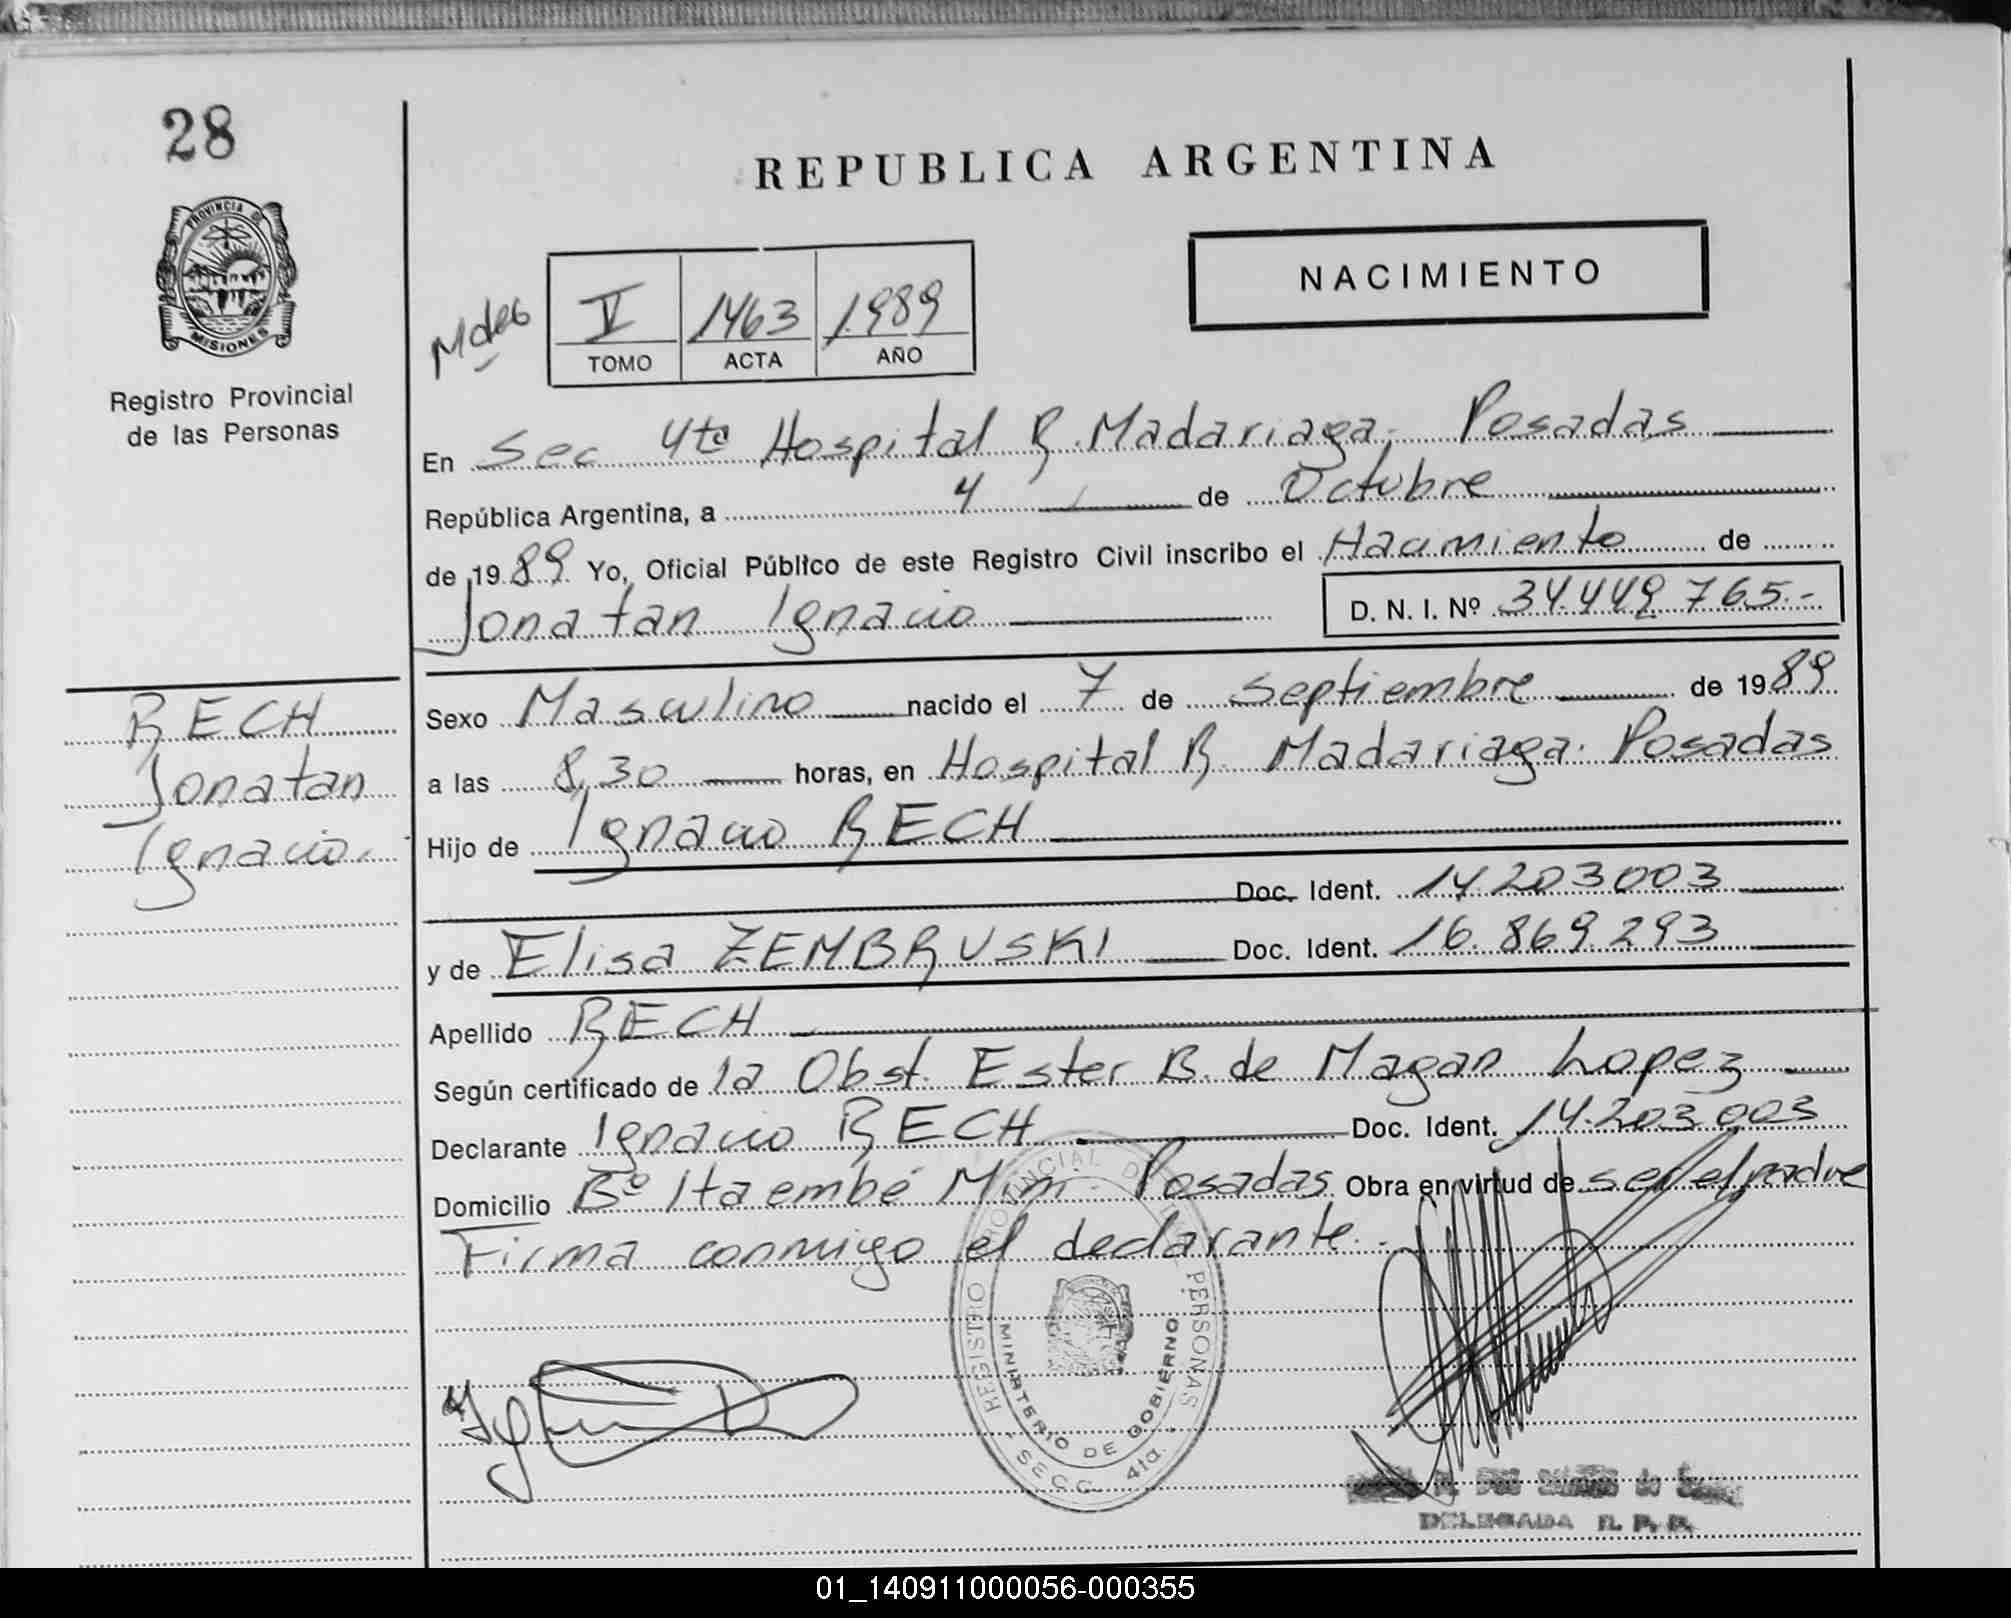 28
REPUBLICA ARGENTINA
PROVINCIA DE
MISIONES
Registro Provincial
de las Personas
NACIMIENTO
V 1463 1989
TOMO ACTA AÑO
En Sec 4ta Hospital R. Madariaga, Posadas
República Argentina, a 4 de Octubre
de 1989 Yo, Oficial Público de este Registro Civil inscribo el Nacimiento de
Jonatan Ignacio D. N. I. Nº 34.449.765.-
RECH
Jonatan
Ignacio.
Sexo Masculino nacido el 7 de Septiembre de 1989
a las 8,30 horas, en Hospital R. Madariaga. Posadas
Hijo de Ignacio RECH
Doc. Ident. 14.203003
y de Elisa ZEMBRUSKI Doc. Ident. 16.869.293
Apellido RECH
Según certificado de la Obst. Ester B. de Magan Lopez
Declarante Ignacio RECH Doc. Ident. 14.203.003
Domicilio Bº Itaembé Mini - Posadas Obra en virtud de ser el padre
Firma conmigo el declarante.-
REGISTRO PROVINCIAL DE LAS PERSONAS
MINISTERIO DE GOBIERNO
SECC. 4ta.
DELEGADA R. P. P.
01_140911000056-000355